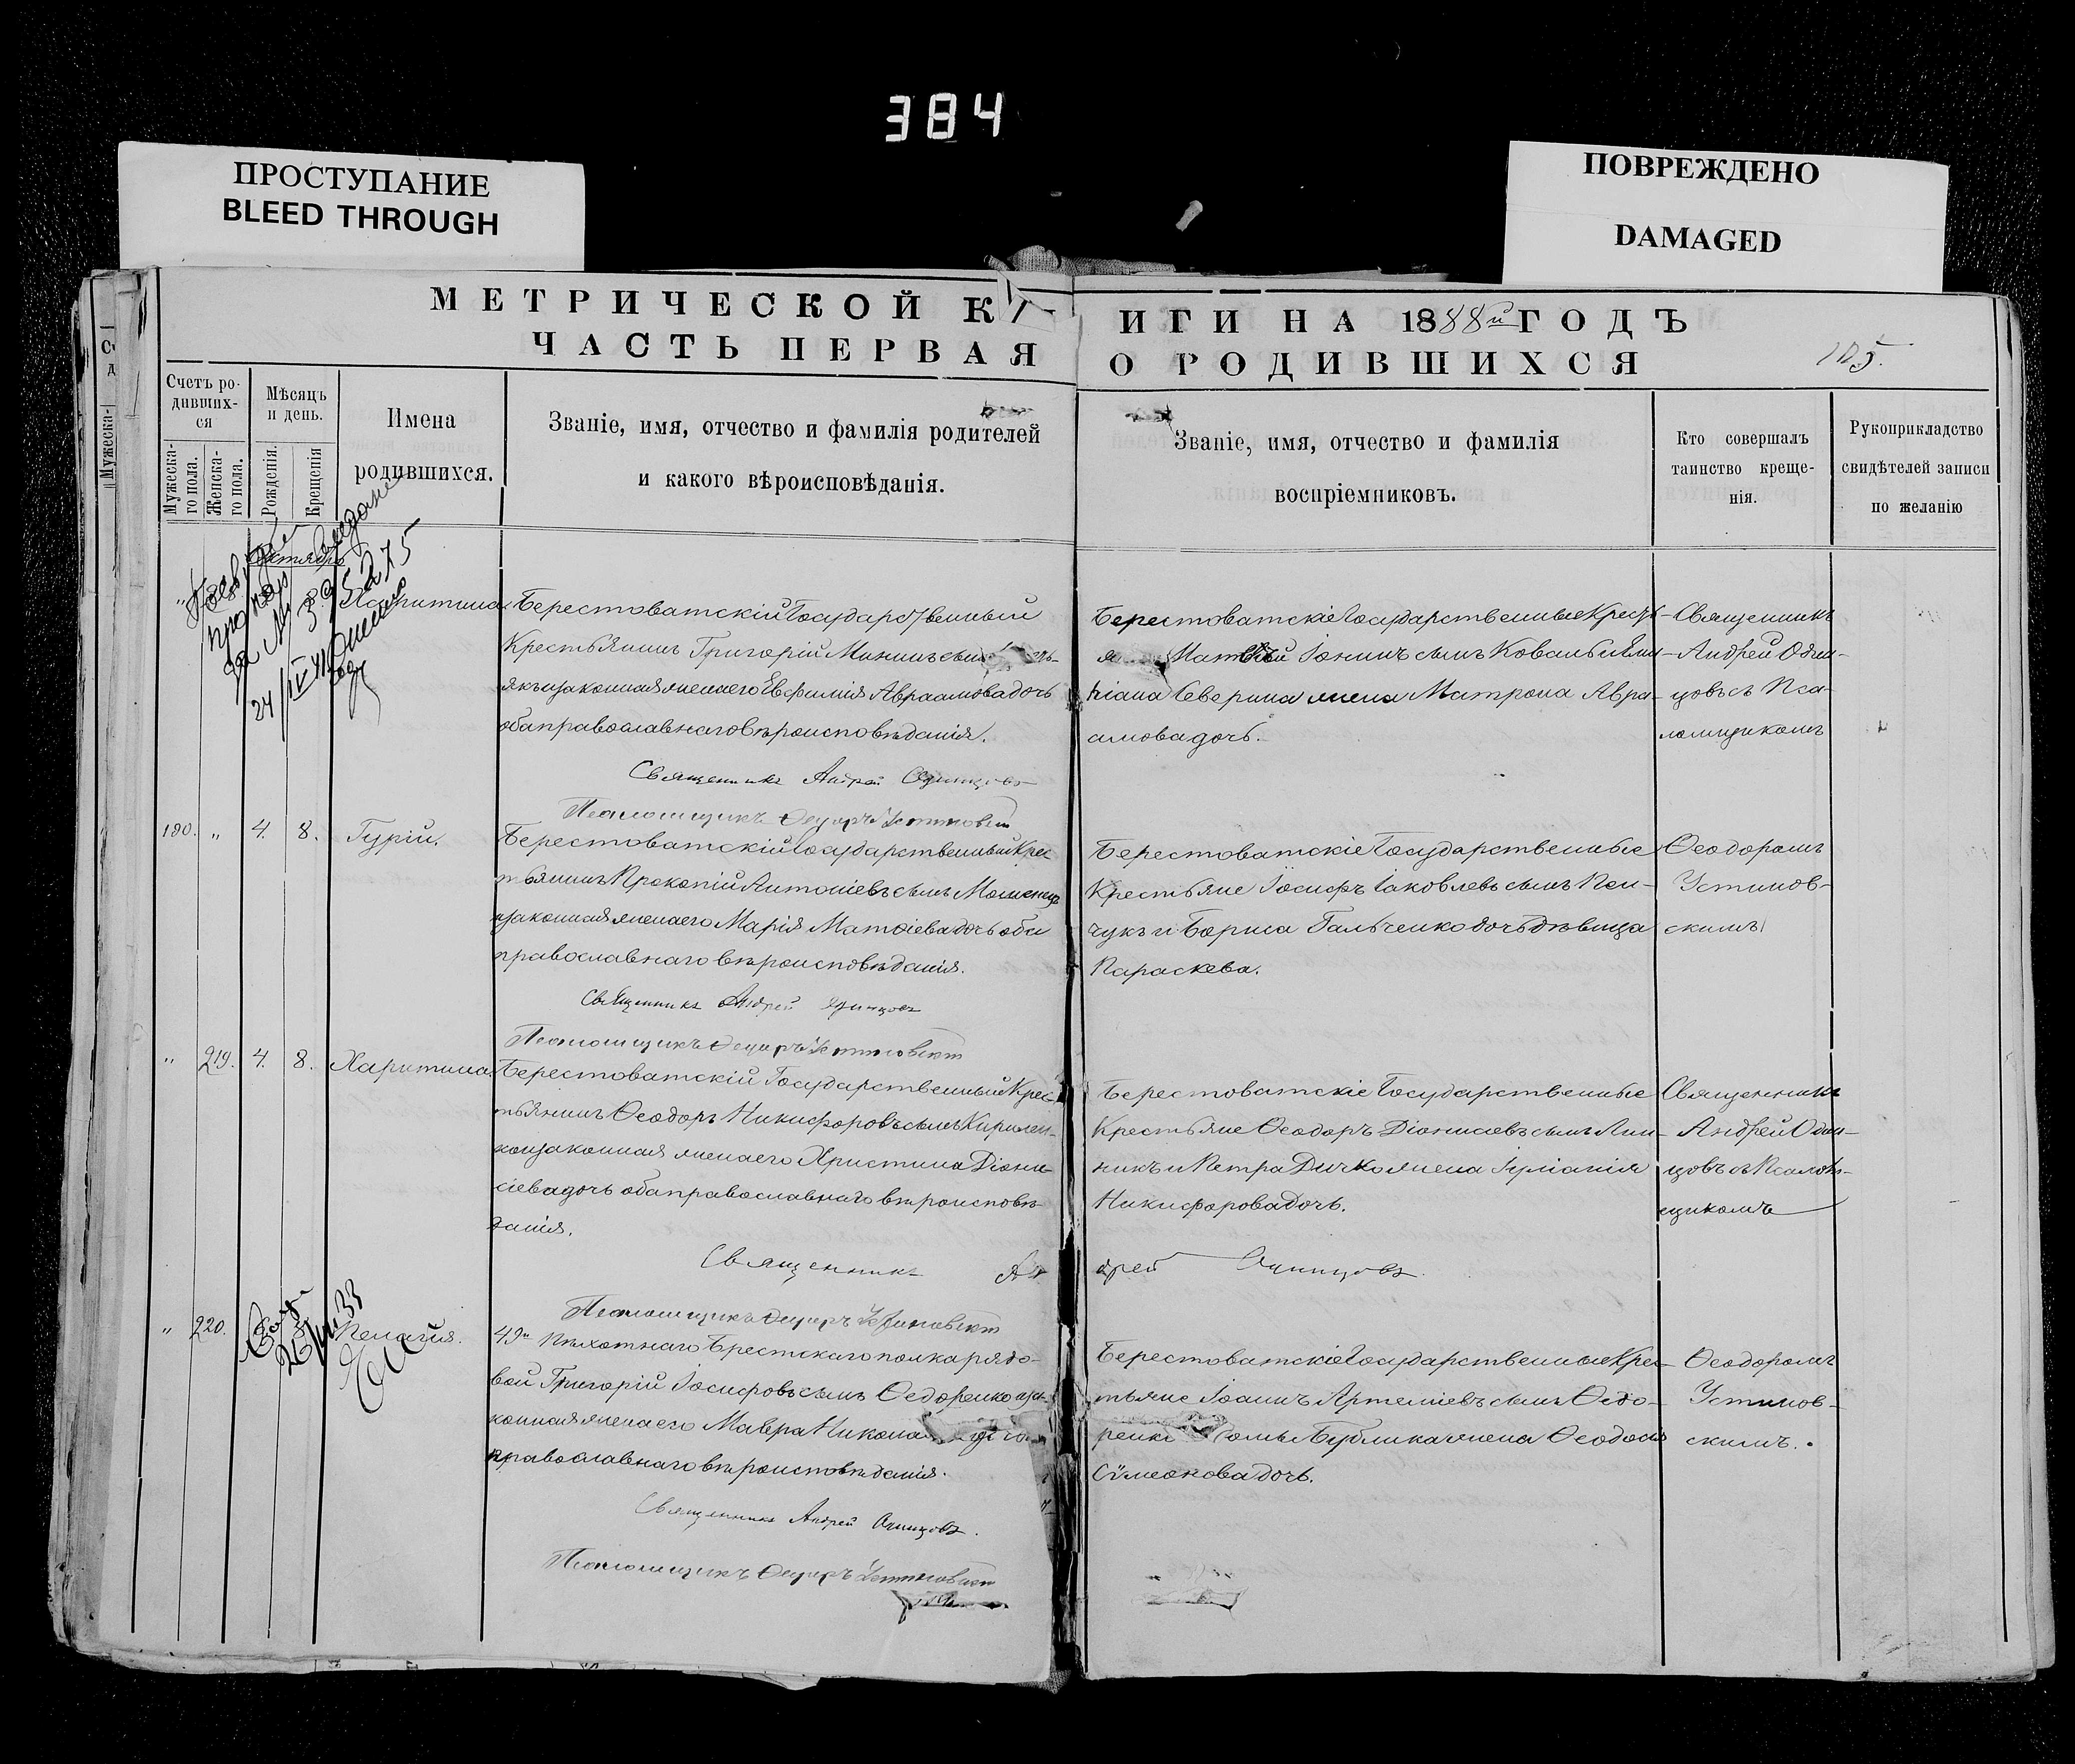 384
ПРОСТУПАНИЕ
BLEED THROUGH
ПОВРЕЖДЕНО
DAMAGED
МЕТРИЧЕСКОЙ К
ИГИ НА 1888й ГОДЪ
ЧАСТЬ ПЕРВАЯ
О РОДИВШИХСЯ
105.
Счетъ ро-
дивших-
ся
Мужеска-
го пола.
Женска-
го пола.
Мѣсяцъ
и день.
Рожденія.
Крещенія
Имена
родившихся.
Званіе, имя, отчество и фамилія родителей
и какого вѣроисповѣданія.
Званіе, имя, отчество и фамилія
воспріемниковъ.
Кто совершалъ
таинство креще-
нія.
Рукоприкладство
свидѣтелей записи
по желанію
Мужеска-
Октябрь
24/IV 41
Харитина
Берестоватскій Государственный
Крестьянинъ Григорій Мининъ сынъ
якъ и законная жена его Евфимія Авраамова дочь
оба православнаго вѣроисповѣданія.
Священникъ Андрей Одинцовъ
Псаломщикъ Ѳедоръ Устиновскій
Берестоватскіе Государственные Крестья-
Матѳій Іонинъ сынъ Коваль и Еми-
ліана Северина жена Матрона Авра-
амова дочь.
Священникъ
Андрей Один-
цовъ съ Пса-
ломщикомъ
180. " 4. 8. Гурій.
Берестоватскій Государственный Крес-
тьянинъ Прокопій Антоніевъ сынъ
и законная жена его Марія Матѳіева дочь оба
православнаго вѣроисповѣданія.
Священникъ Андрей Одинцовъ
Псаломщикъ Ѳедоръ Устиновскій
Берестоватскіе Государственные
Крестьяне Іосифъ Іаковлевъ сынъ Пен-
чукъ и Бориса Гальченко дочь дѣвица
Параскева.
Ѳеодоромъ
Устинов-
скимъ
" 219. 4. 8. Харитина.
Берестоватскій Государственный Крес-
тьянинъ Ѳеодоръ Никифоровъ сынъ Кирилен-
ко и законная жена его Христина Діони-
сіева дочь оба православнаго вѣроисповѣ-
данія.
Священникъ Андрей Одинцовъ
Псаломщикъ Ѳедоръ Устиновскій
Берестоватскіе Государственные
Крестьяне Ѳеодоръ Діонисіевъ сынъ Лин-
никъ и Петра Дичко жена Іуліанія
Никифорова дочь.
Священникъ
Андрей Один-
цовъ съ Псалом-
щикомъ
" 220. Пелагія.
49го Пѣхотнаго Брестскаго полка рядо-
вой Григорій Іосифовъ сынъ Ѳедоренко и за-
конная жена его Мавра
православнаго вѣроисповѣданія.
Священникъ Андрей Одинцовъ.
Псаломщикъ Ѳедоръ Устиновскій
Берестоватскіе Государственные Крес-
тьяне Іоаннъ Артеміевъ сынъ Ѳедо-
ренко Бублика жена Ѳеодосія
Сѵмеонова дочь.
Ѳеодоромъ
Устинов-
скимъ.